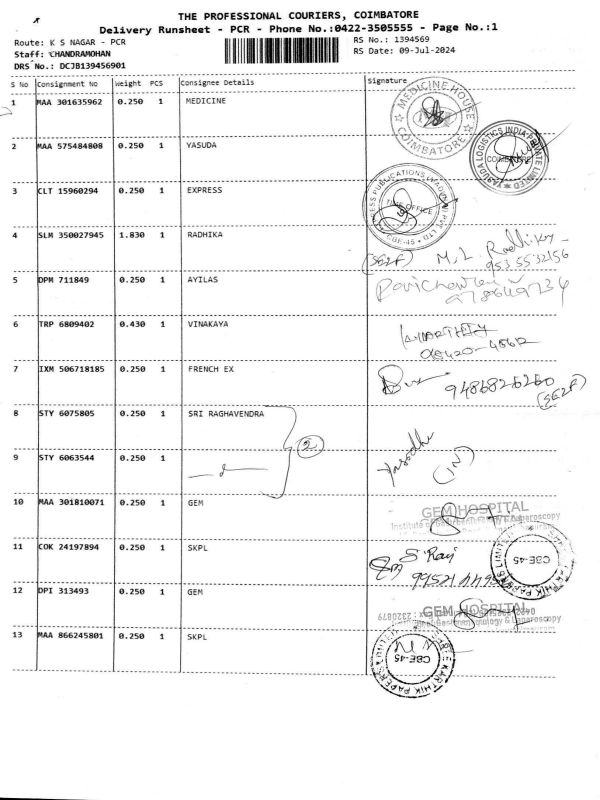 THE PROFESSIONAL COURIERS, COIMBATORE
Delivery Runsheet - PCR - Phone No.:0422-3505555 - Page No.:1
Route: K S NAGAR - PCR
RS No.: 1394569
Staff: CHANDRAMOHAN
RS Date: 09-Jul-2024
DRS No.: DCJB139456901
S No Consignment No Weight PCS Consignee Details Signature
1 MAA 301635962 0.250 1 MEDICINE
MEDICINE HOUSE COIMBATORE
2 MAA 575484808 0.250 1 YASUDA
YASUDA LOGISTICS INDIA PRIVATE LIMITED COIMBATORE
3 CLT 15960294 0.250 1 EXPRESS
TIME OFFICE
CBE-45
4 SLM 350027945 1.830 1 RADHIKA
(SE2F) M. L. Radhika
953 5532156
5 DPM 711849 0.250 1 AYILAS
6 TRP 6809402 0.430 1 VINAKAYA
7 IXM 506718185 0.250 1 FRENCH EX
9486826260
(SE2F)
8 STY 6075805 0.250 1 SRI RAGHAVENDRA
2
9 STY 6063544 0.250 1
Yasodha
(IN)
10 MAA 301810071 0.250 1 GEM
GEM HOSPITAL
11 COK 24197894 0.250 1 SKPL
S. Raj
CBE-45
12 DPI 313493 0.250 1 GEM
GEM HOSPITAL
13 MAA 866245801 0.250 1 SKPL
SREE KARTHIK PAPERS LIMITED
CBE-45